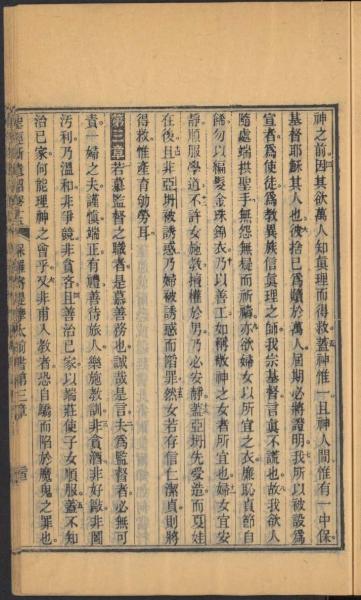 神之前因其欲萬人知眞理而得救蓋神惟一且神人間惟有一中保
基督耶穌其人也彼捨已爲贖於萬人屆期必將證明我所以被設爲
宣者爲使徒爲教異族信眞理之師我宗基督言眞不謊也故我欲人
隨處端拱聖手無怨無疑而祈禱亦欲婦女以所宜之衣廉恥貞節自
飾勿以編髮金珠錦衣乃以善工如稱敬神之女者所宜也婦女宜安
靜順服學道不許女施教擅權於男乃必安靜蓋亞坍先受造而夏娃
在後且非亞坍被誘惑乃婦被誘惑而陷罪然女若存信仁潔貞則將
得救惟產育劬勞耳
第三章若慕監督之職者是慕善務也誠哉是言夫爲監督者必無可
責一婦之夫謹愼端正有禮善待旅人樂施教訓非貪酒非好毆非圖
污利乃溫和非爭競非貪吝且善治已家以端莊使子女順服蓋不知
治已家何能理神之會乎又非甫入教者恐自驕而陷於魔鬼之罪也
保羅寄提摩太前書第三章